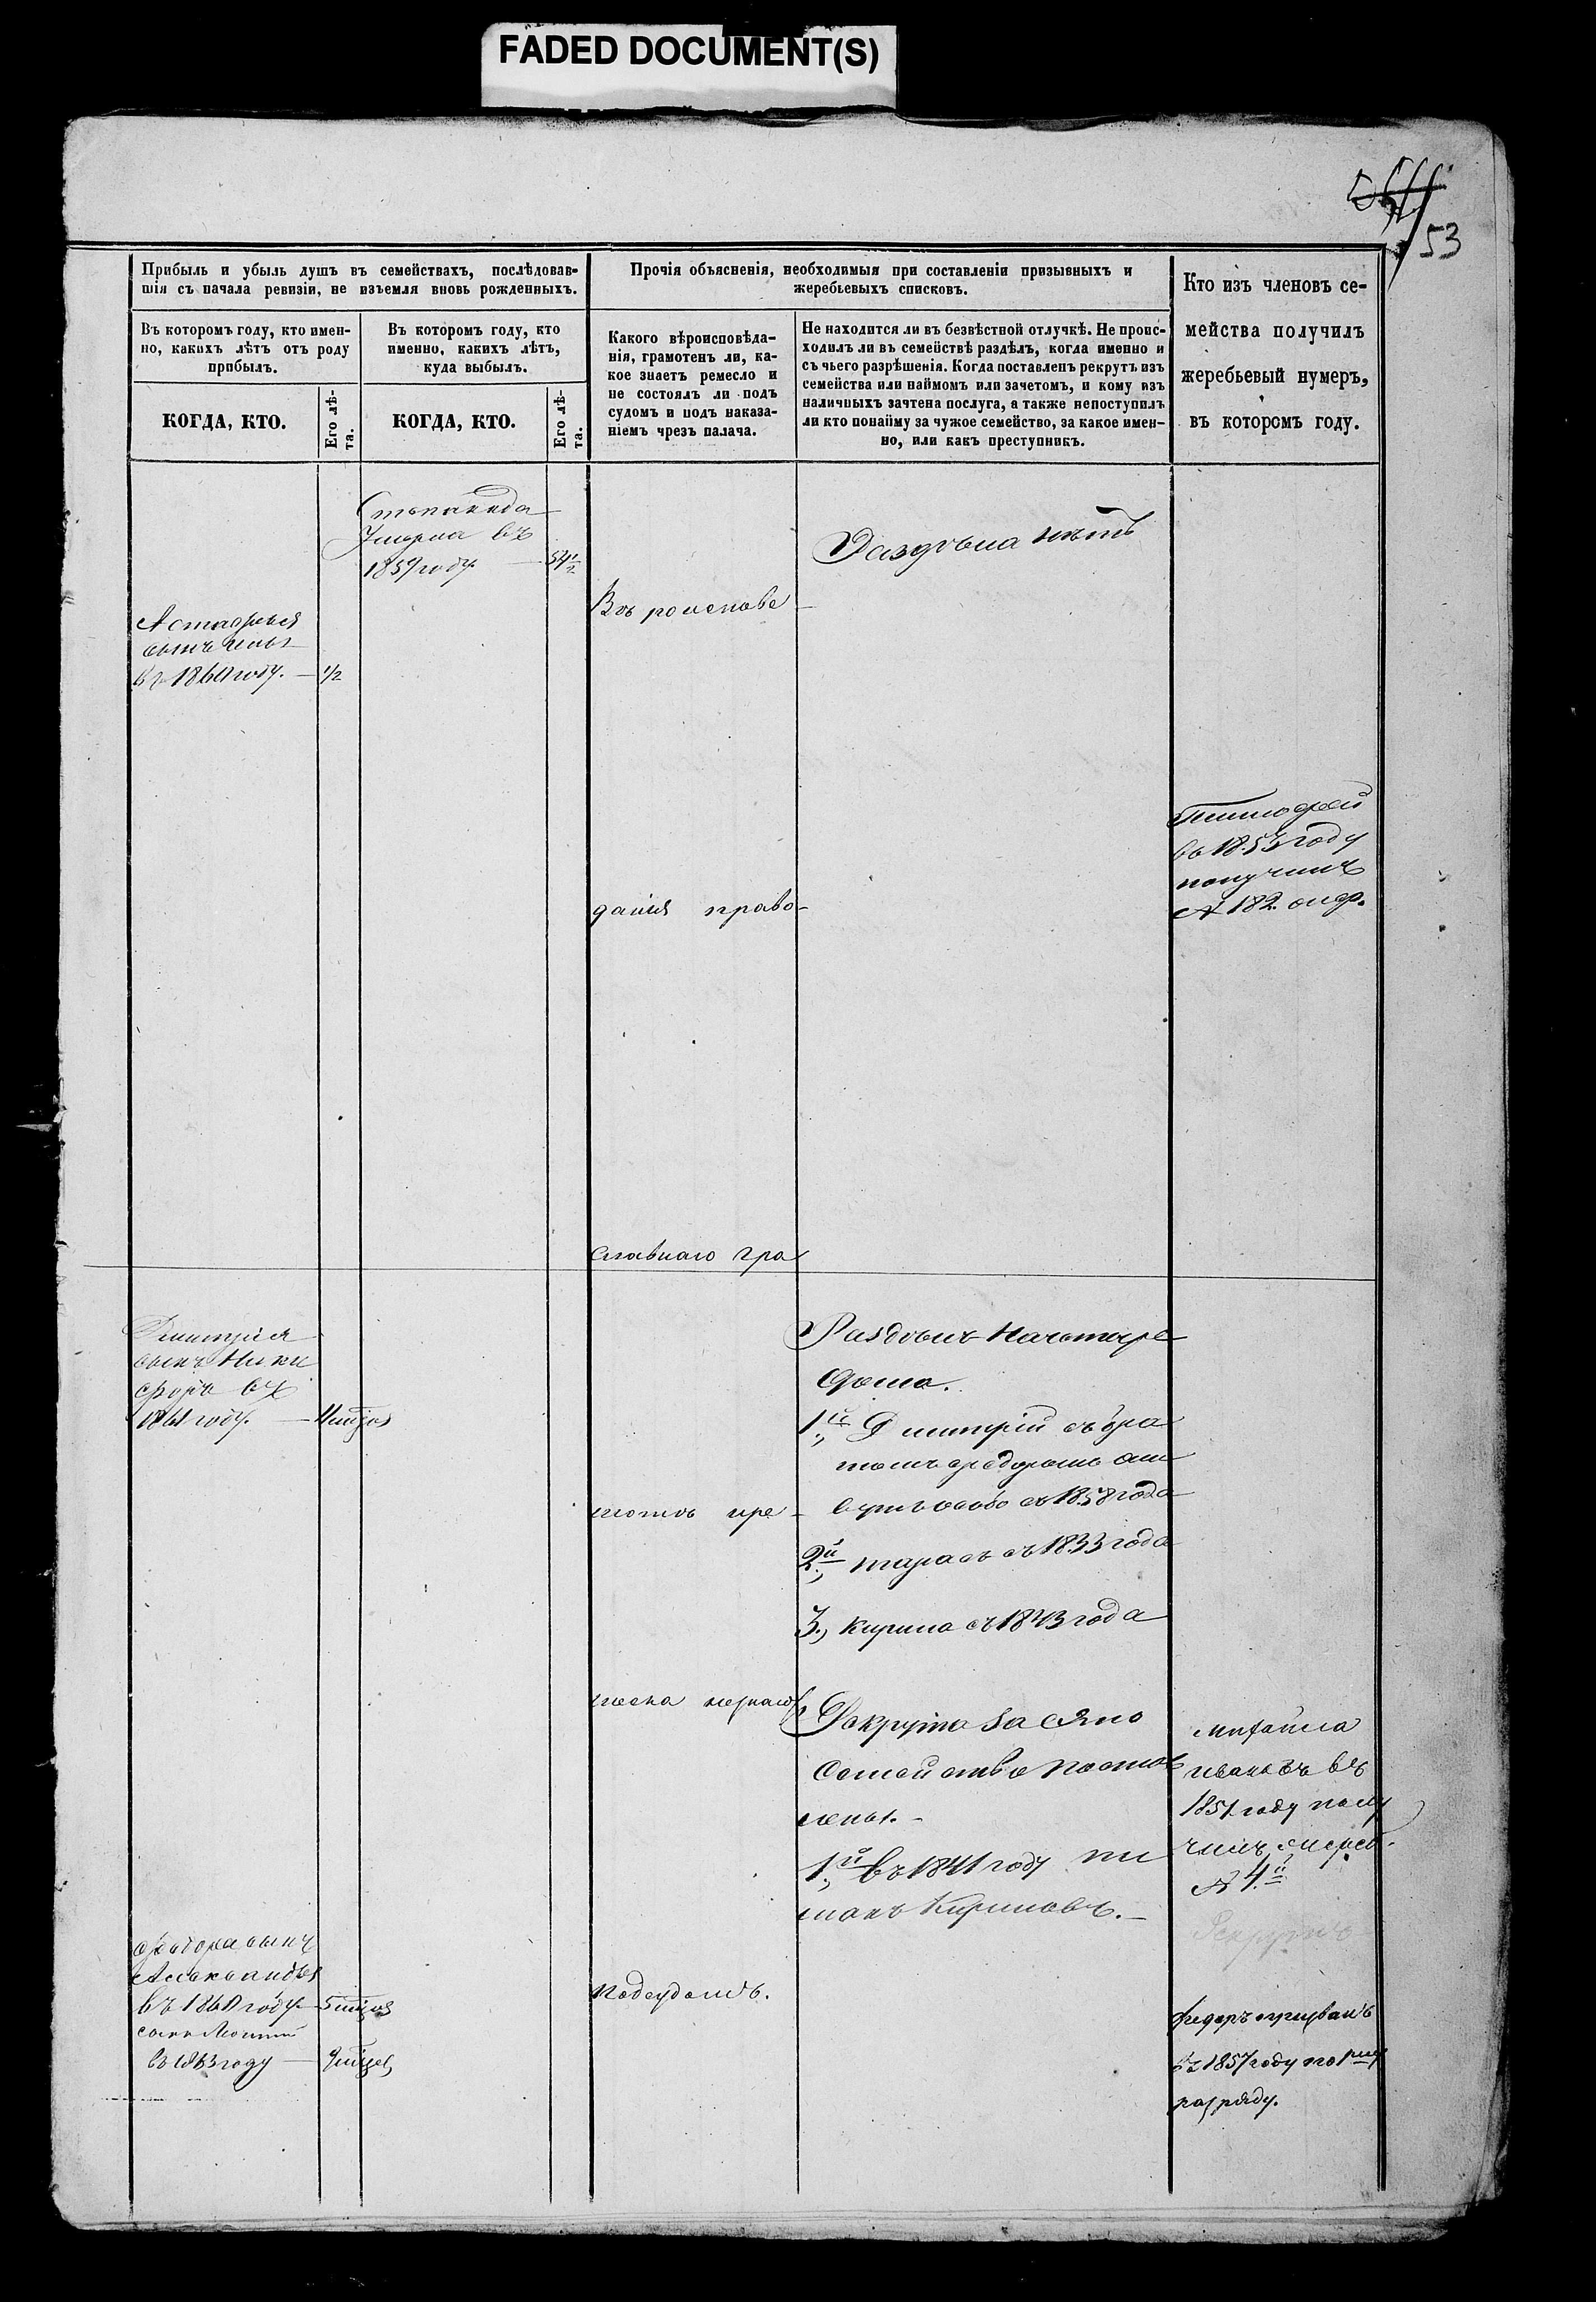 FADED DOCUMENT(S)
53
Прибыль и убыль душъ въ семействахъ, послѣдовав-
шія съ начала ревизіи, не изъемля вновь рожденныхъ.
Прочія объясненія, необходимыя при составленіи призывныхъ и
жеребьевыхъ списковъ.
Кто изъ членовъ се-
мейства получилъ
жеребьевый нумеръ,
въ которомъ году.
Въ которомъ году, кто имен-
но, какихъ лѣтъ отъ роду
прибылъ.
Въ которомъ году, кто
именно, какихъ лѣтъ,
куда выбылъ.
Какого вѣроисповѣда-
нія, грамотенъ ли, ка-
кое знаетъ ремесло и
не состоялъ ли подъ
судомъ и подъ наказа-
ніемъ чрезъ палача.
Не находится ли въ безвѣстной отлучкѣ. Не проис-
ходилъ ли въ семействѣ раздѣлъ, когда именно и
съ чьего разрѣшенія. Когда поставленъ рекрутъ изъ
семейства или наймомъ или зачетомъ, и кому изъ
наличныхъ зачтена послуга, а также непоступилъ
ли кто понайму за чужое семейство, за какое имен-
но, или какъ преступникъ.
КОГДА, КТО.
Его лѣ-
та.
КОГДА, КТО.
Его лѣ-
та.
Степанида
Умерла въ
1859 году 54½
Раздѣла нѣтъ
Вѣроиспове-
Астафья
сынъ
въ 1860 году. ½
Тимофей
въ 1853 году
получилъ
№ 182.
данія право-
славнаго гра
Дмитрія
сынъ Ники
форъ въ
1861 году.
Раздѣлъ на четыре
дома.
1й., Дмитрій съ бра
томъ Федоромъ
особо съ 1858 года
мотѣ, ре-
2й., Тарасъ съ 1833 года
3., Кирила съ 1843 года
месла незнаютъ
Рекрута за сѣмо
Семейство постав
лены.-
1й., въ 1841 году
Кириловъ.-
Михайла
Ивановъ въ
1851 году полу
чилъ жереб.
№ 4й
Рекрутъ
Федора сынъ
Александръ
въ 1860 году 5
сынъ
въ 1863 году
Подсудомъ.
Федоръ призванъ
въ 1857 году по 1му
разряду.